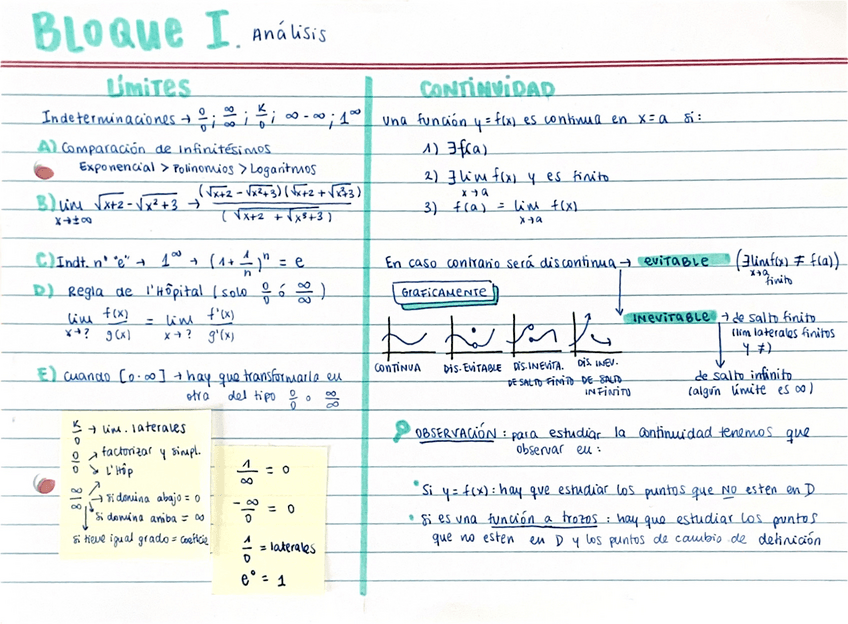 BLOQUE I. Análisis
LÍMITES
Indeterminaciones → 0/0 ; ∞/∞ ; K/0 ; ∞ - ∞ ; 1^∞
A) Comparación de infinitésimos
Exponencial > Polinomios > Logaritmos
B) lim x→±∞ √x+2 - √x²+3 → (√x+2 - √x²+3)(√x+2 + √x²+3) / (√x+2 + √x²+3)
C) Indt. nº "e" → 1^∞ → (1 + 1/n)^n = e
D) Regla de l'Hôpital (solo 0/0 ó ∞/∞)
lim x→? f(x)/g(x) = lim x→? f'(x)/g'(x)
E) Cuando [0·∞] → hay que transformarla en
otra del tipo 0/0 o ∞/∞
K/0 → lim. laterales
0/0 → factorizar y simpl.
→ L'Hôp
∞/∞ → si domina abajo = 0
si domina arriba = ∞
si tiene igual grado = coeficie
1/∞ = 0
-∞/0 = 0
1/0 = laterales
e⁰ = 1
CONTINUIDAD
Una función y = f(x) es continua en x=a si:
1) ∃f(a)
2) ∃ lim x→a f(x) y es finito
3) f(a) = lim x→a f(x)
En caso contrario será discontinua → EVITABLE (∃ lim x→a f(x) ≠ f(a))
finito
GRÁFICAMENTE
INEVITABLE → de salto finito
(lim laterales finitos
y ≠)
de salto infinito
(algún límite es ∞)
CONTÍNUA
DIS. EVITABLE
DIS. INEVITA.
DE SALTO FINITO
DIS. INEV.
DE SALTO
INFINITO
OBSERVACIÓN : para estudiar la continuidad tenemos que
observar en :
• Si y = f(x) : hay que estudiar los puntos que NO esten en D
• Si es una función a trozos : hay que estudiar los puntos
que no esten en D y los puntos de cambio de definición